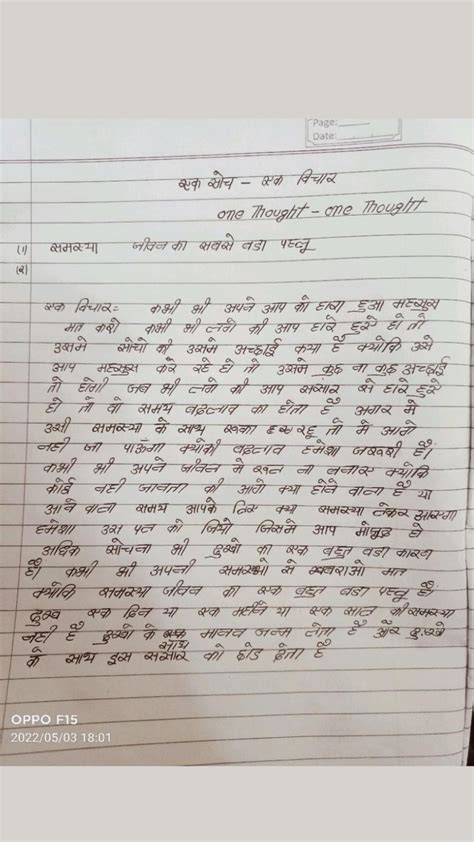 Page:
Date:
एक सोच - एक विचार
one Thought - one Thought
(1) समस्या जीवन का सबसे बडा पहलू
(२)
एक विचार:- कभी भी अपने आप को हारा हुआ महसुस
मत करो कभी भी लगे की आप हारे हुऐ हो तो
उसमे सोचो की उसमे अच्छाई क्या है क्योकि उसे
आप महसुस कर रहे हो तो उसमे कुछ ना कुछ अच्छाई
तो होगी जब भी लगे की आप संसार से हारे हुऐ
हो तो वो समय बदलाव का होता है अगर मे
उसी समस्या के साथ रुका रहु तो मे आगे
नही जा पाऊँगा क्योकी बदलाव हमेशा जरुरी है।
कभी भी अपने जीवन मे ना बनाए क्योकि
कोई नही जानता की आगे क्या होने वाला है या
आने वाला समय आपके लिए क्या समस्या लेकर आएगा
हमेशा उस पल को जियो जिसमे आप मौजुद हो
अधिक सोचना भी दुखो का एक बहुत बडा कारण
है। कभी भी अपनी समस्या से घबराओ मत
क्योकि समस्या जीवन का एक बहुत बडा पहलू है।
दुख एक दिन या एक महिने या एक साल की समस्या
नही है दुखो के साथ मानव जन्म लेता है और दुःखो
के साथ इस संसार को छोड देता है
OPPO F15
2022/05/03 18:01